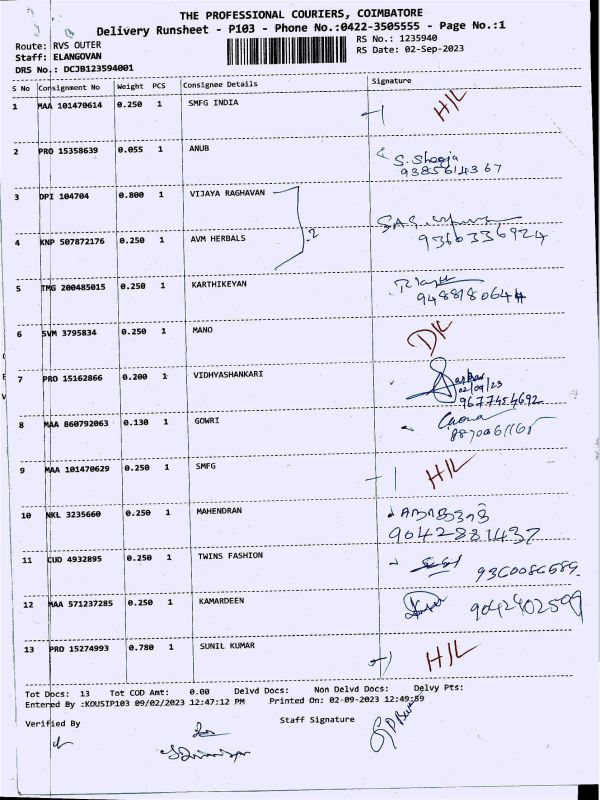 THE PROFESSIONAL COURIERS, COIMBATORE
Delivery Runsheet - P103 - Phone No.:0422-3505555 - Page No.:1
Route: RVS OUTER
RS No.: 1235940
Staff: ELANGOVAN
RS Date: 02-Sep-2023
DRS No.: DCJB123594001
S No Consignment No Weight PCS Consignee Details Signature
1 MAA 101470614 0.250 1 SMFG INDIA H/L
2 PRO 15358639 0.055 1 ANUB
9385614367
3 DPI 104704 0.800 1 VIJAYA RAGHAVAN
2
4 KNP 507872176 0.250 1 AVM HERBALS 9360336924
5 TMG 200485015 0.250 1 KARTHIKEYAN
6 SVM 3795834 0.250 1 MANO DK
7 PRO 15162866 0.200 1 VIDHYASHANKARI
02/09/23
9677454692
8 MAA 860792063 0.130 1 GOWRI
9 MAA 101470629 0.250 1 SMFG H/L
10 NKL 3235660 0.250 1 MAHENDRAN
9042881437
11 CUD 4932895 0.250 1 TWINS FASHION
12 MAA 571237285 0.250 1 KAMARDEEN 9042402599
13 PRO 15274993 0.780 1 SUNIL KUMAR H/L
Tot Docs: 13 Tot COD Amt: 0.00 Delvd Docs: Non Delvd Docs: Delvy Pts:
Entered By :KOUSIP103 09/02/2023 12:47:12 PM Printed On: 02-09-2023 12:49:59
Verified By Staff Signature